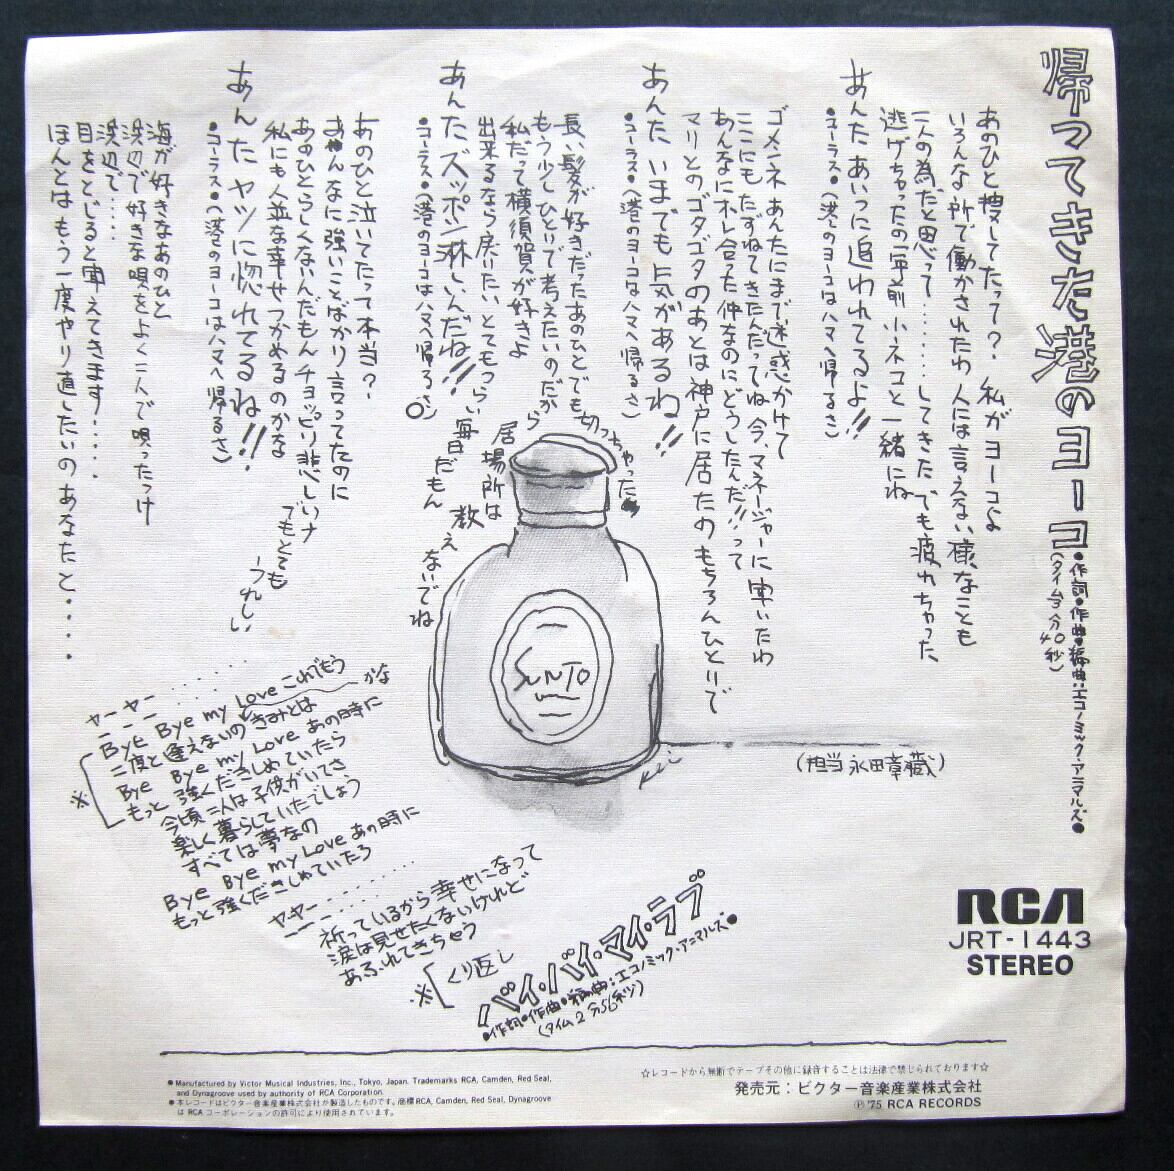 帰ってきた港のヨーコ
●作詞●作曲●編曲:エコノミック・アニマルズ●
(タイム3分40秒)
あのひと捜してたって?. 私がヨーコよ
いろんな所で働かされたわ 人には言えない様なことも
二人の為だと思って........してきた でも疲れちゃった、
逃げちゃったの一年前 小ネコと一緒にね
あんた あいつに追われてるよ!!
●コーラス●(港のヨーコはハマへ帰るさ)
ゴメンネ あんたにまで迷惑かけて
ここにも たずねてきたんだってね 今、マネージャーに聞いたわ
あんなにホレ合った仲なのにどうしたんだ!!って
マリとのゴタゴタのあとは神戸に居たの もちろんひとりで
あんた いまでも 気があるね!!
●コーラス●(港のヨーコはハマへ帰るさ)
長い髪が好きだったあのひと でも 切っちゃった
もう少しひとりで考えたいのだから
私だって横須賀が好きよ 居場所は
出来るなら戻りたい とてもつらい毎日だもん 教えないでね
あんた ズッポシ淋しいんだね!!
●コーラス●(港のヨーコはハマへ帰るさ)
あのひと泣いてたって本当?.
あんなに強いことばかり言ってたのに
あのひとらしくないんだもん チョッピリ悲しいナ
私にも人並な幸せつかめるのかな でもとても うれしい
あんた ヤツに惚れてるね!!
●コーラス●(港のヨーコはハマへ帰るさ)
海が好きなあのひと
浜辺で好きな唄をよく二人で唄ったっけ
浜辺で....
目をとじると聞えてきます.....
ほんとは もう一度やり直したいの あなたと.....
SUNTO
(担当 永田章蔵)
ヤーヤー........
ーー ーー......
Bye Bye my Love これでもう
二度と逢えないの きみとは かな
Bye Bye my Love あの時に
もっと 強くだきしめていたら
※
今頃 二人は子供がいてさ
楽しく暮らしていたでしょう
すべては夢なの
Bye Bye my Love あの時に
もっと強くだきしめていたら
ヤーヤー........
ーー ーー......
祈っているから幸せになって
涙は見せたくないけれど
あふれてきちゃう
※ くり返し
バイ・バイ・マイ・ラブ
●作詞●作曲●編曲:エコノミック・アニマルズ●
(タイム2分56秒)
RCA
JRT-1443
STEREO
●Manufactured by Victor Musical Industries, Inc., Tokyo, Japan. Trademarks RCA, Camden, Red Seal,
and Dynagroove used by authority of RCA Corporation.
●本レコードはビクター音楽産業株式会社が製造したものです。商標RCA, Camden, Red Seal, Dynagroove
は RCA コーポレーションの許可により使用されています。
☆レコードから無断でテープその他に録音することは法律で禁じられております☆
発売元:ビクター音楽産業株式会社
Ⓟ '75 RCA RECORDS